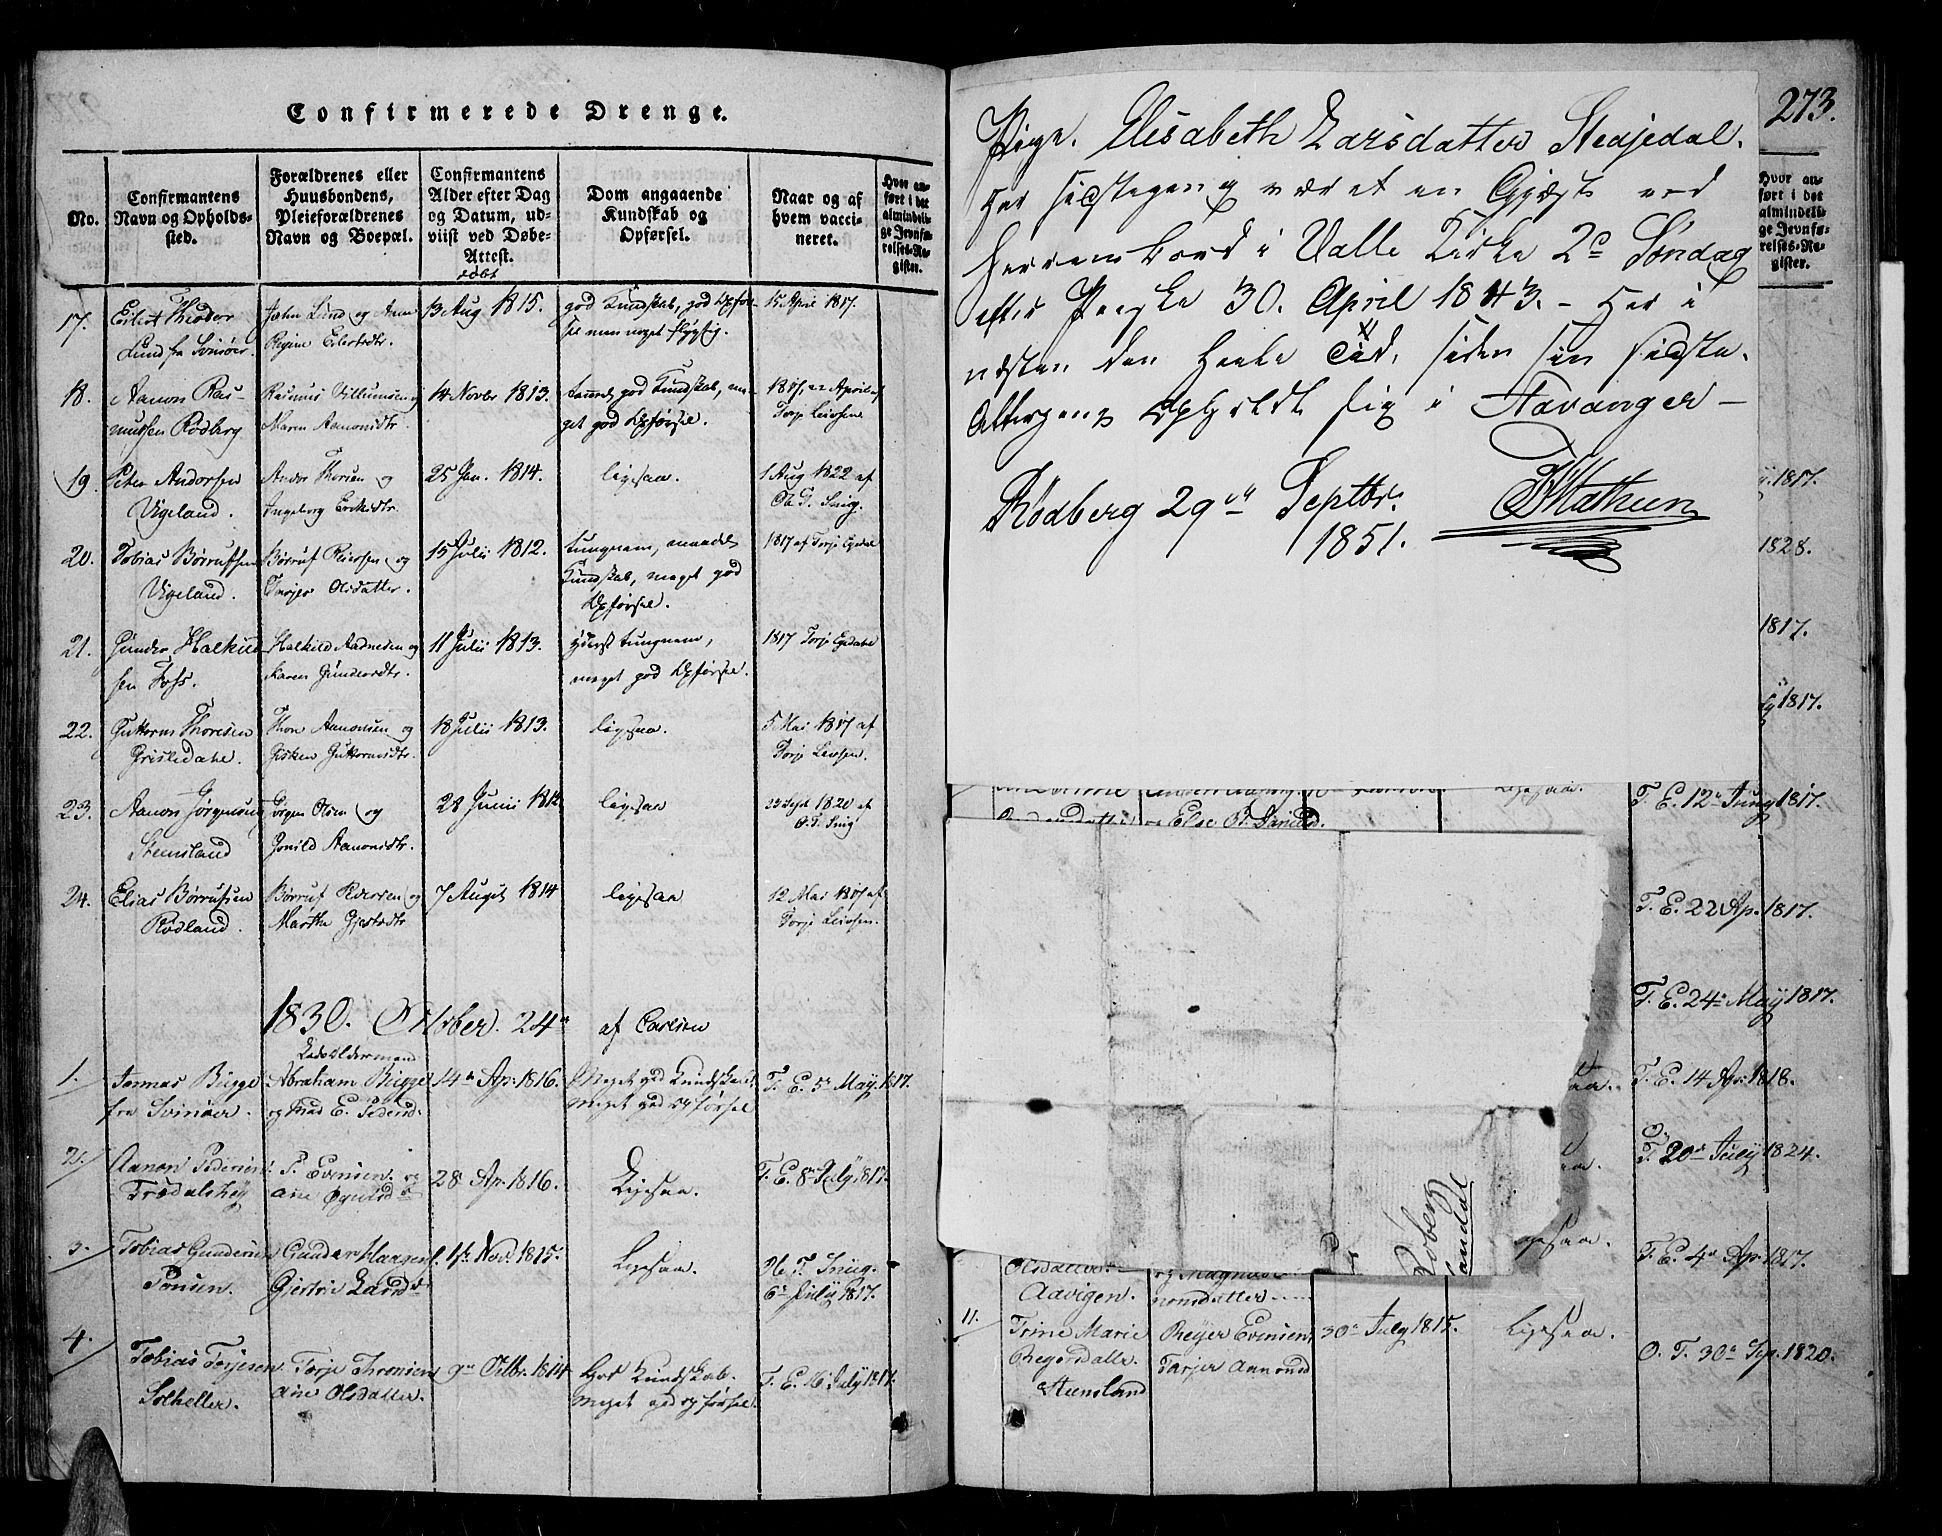 Confirmerede Drenge.
No.
Confirmantens
Navn og Opholds-
sted.
Forældrenes eller
Huusbondens,
Pleieforældrenes
Navn og Boepæl.
Confirmantens
Alder efter Dag
og Datum, ud-
viist ved Døbe-
Attest.
døbt
Dom angaaende
Kundskab og
Opførsel.
Naar og af
hvem vacci-
neret.
Hvor an-
ført i det
almindeli-
ge Jevnfø-
relses-Re-
gister.
17.
Eilert Theodor
Lund fra Svinøer.
John Lund og Ane
Regine Eilertsdtr.
13 Aug 1815.
god Kundskab, god Opfør-
sel men noget flygtig.
15 April 1817.
18.
Aanon Ras-
mussen Rødberg
Rasmus Villumsen og
Maren Aanonsdtr.
14 Novbr 1813.
god Kundskab, me-
get god Opførsel.
1817, 22 April af
Torje Leivsen
19.
Peter Andorsen
Vigeland.
Andor Thorsen og
Ingeborg Eriksdtr.
25 Jan. 1814.
ligesaa.
1 Aug 1822 af
O. T. Snig.
20.
Tobias Børrufsen
Vigeland.
Børruf Reiersen og
Torjer Olsdatter.
15 Julii 1812.
tungnem, maadel.
Kundskab, meget god
Opførsel.
1817 af Torje Egdal
21.
Gunder Halkild-
sen Foss.
Halkild Aadnesen og
Karen Gundersdtr.
11 Julii 1813.
yderst tungnem,
meget god Opførsel.
1817 Torje Egdahl
22.
Guttorm Thoresen
Grisledahl.
Thore Aanonsen og
Gisken Guttormsdtr.
18 Julii 1813.
ligesaa.
5 Mai 1817 af
Torje Leivsen.
23.
Aanon Jørgensen
Stensland
Jørgen Olsen og
Gonild Aanonsdtr.
28 Junii 1812
ligesaa
23 Sept 1820 af
O. T. Snig
24.
Elias Børrufsen
Rødland.
Børruf Reiersen og
Martha Gjertsdtr
7 August 1814
ligesaa
12 Mai 1817 af
Torje Leivsen.
1830. October. 24de af Carlsen
1.
Jonnas Bugge
fra Svinøer.
Lodsoldermand
Abraham Bugge
og Mad E. Pedersd.
14de Ap. 1816.
Meget god Kundskab
meget god opførsel
T. E. 5te May. 1817.
2.
Aanon Pedersen
Trædalshey
P. Evensen og
Ane Øyulsd
28 Ap. 1816.
Ligesaa.
T. E. 8de July. 1817.
3.
Tobias Gundersen
Ponsen.
Gunder Haagens.
Gjertrue Larsd
1ste Nov. 1815.
Ligesaa.
O. T. Snig.
6te July 1817.
4.
Tobias Torjesen
Solheller.
Torje Thronsen
Ane Olsdatter.
9de Octbr. 1814
God Kundskab.
Meget god opførsel.
T. E. 16 July 1817.
273.
Pige. Elisabeth Larsdatter Stedjedal.
har sidstegang været en Gjæst ved
Herrens Bord i Valle Kirke 2d Søndag
efter Paaske 30. April 1843. – Har i
næsten den heele Tid, siden sin sidste
Altergang opholdt sig i Stavanger –
Rødberg 29de Septbr.
1851.
Mathesen
Hvor an-
ført i det
almindeli-
ge Jevnfø-
relses-Re-
gister.
1817.
1828.
1817.
1817.
og Else B. Danielsd.
Ligesaa.
T. E. 12te Juny 1817.
T. E. 22 Ap. 1817.
T. E. 24de May 1817.
T. E. 14 Apr. 1818.
O. T. 20de July 1824.
T. E. 4de Ap. 1817.
Olsdatter
Aavigen.
og Magnild
nonsdatter
11.
Trine Marie
Regersdatter
Steensland
Reyer Evensen
Tarjer Aanonsd
30te July 1815.
Ligesaa.
O. T. 30te Sep. 1820.